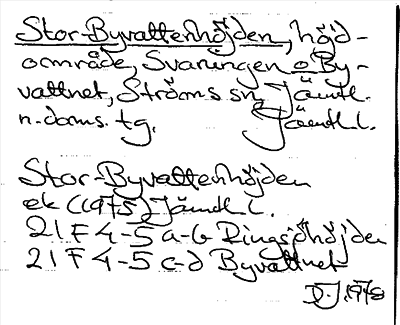 Stor-Byvattenhöjden, höjd-
område, Svaningen o By-
vattnet, Ströms sn, Jämtl.
n. doms. tg. Jämtl. l.
Stor-Byvattenhöjden
ek (1975) Jämtl l.
21 F 4-5 a-b Ringsjöhöjden
21 F 4-5 c-d Byvattnet
DJ 1978